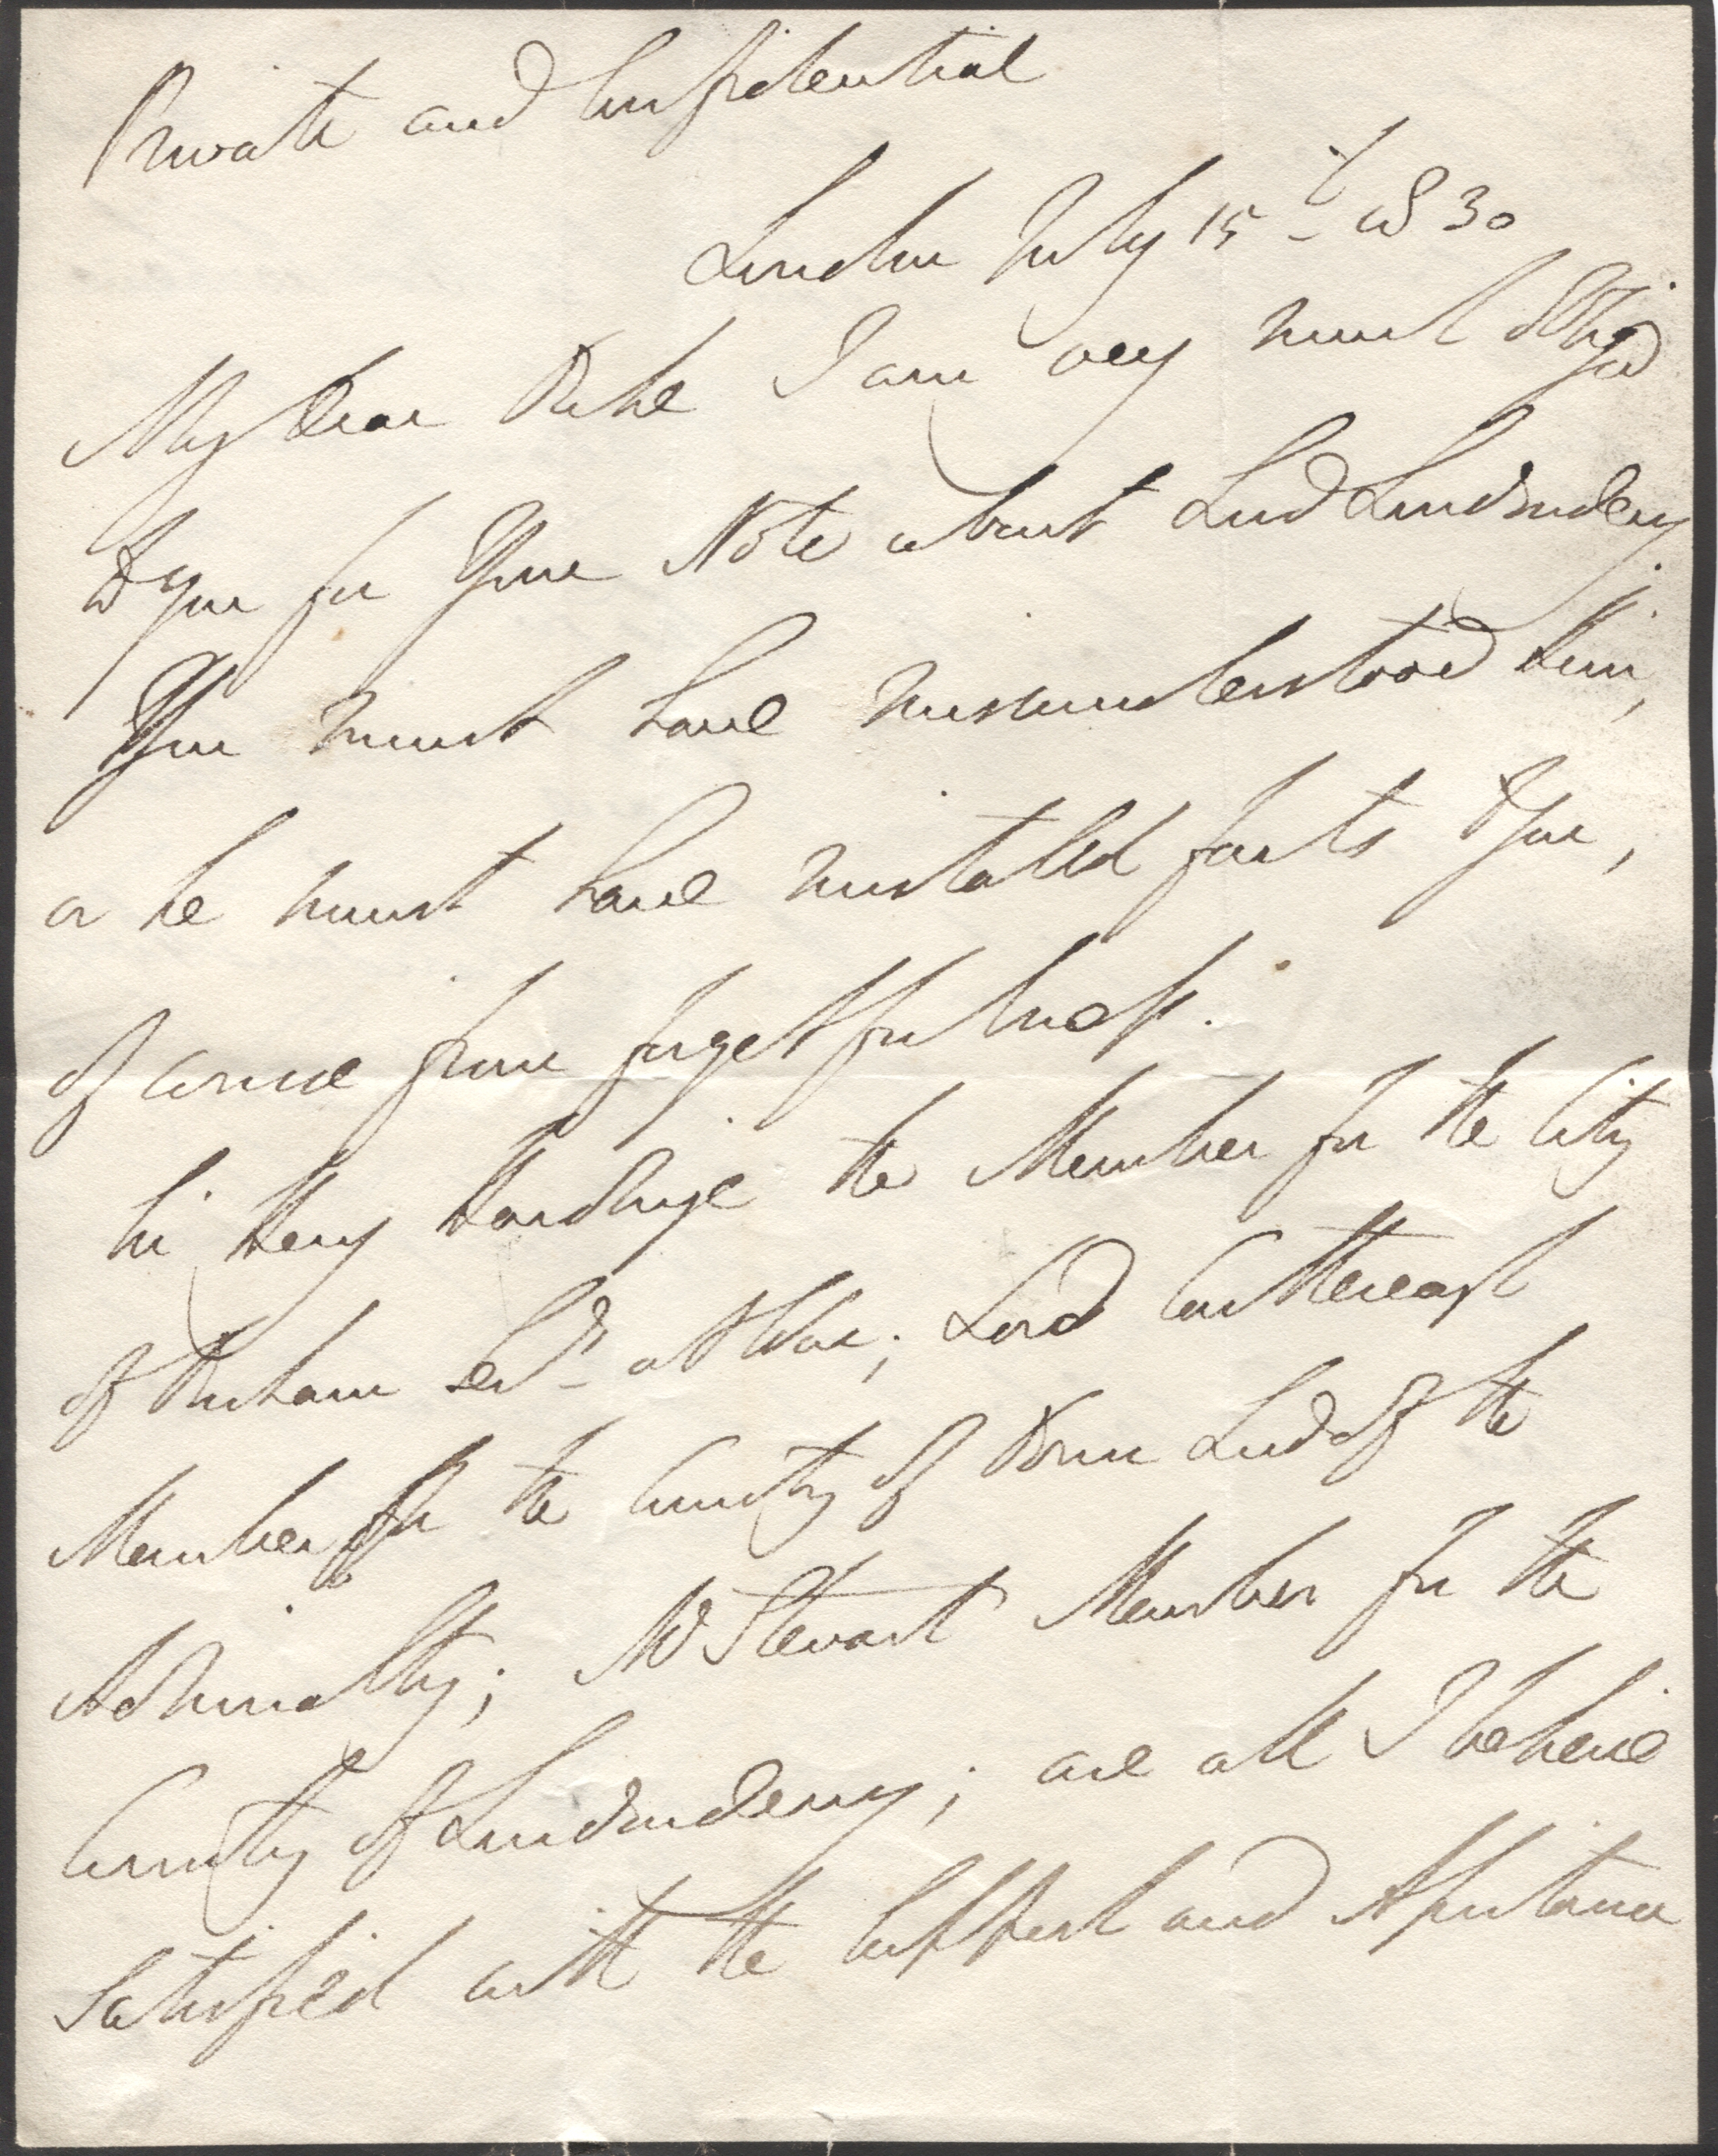 Private and Confidential
London July 15th 1830
My dear Duke I am very much obliged
to you for your Note about Lord Londonderry.
You must have misunderstood him,
or he must have mistated facts to you,
of course from forgetfulness.
Sir Henry Hardinge the Member for the City
of Durham Secy at War; Lord Castlereagh
Member for the County of Down Lord of the
Admiralty; Mr Stewart Member for the
County of Londonderry; are all I believe
satisfied with the support and assistance